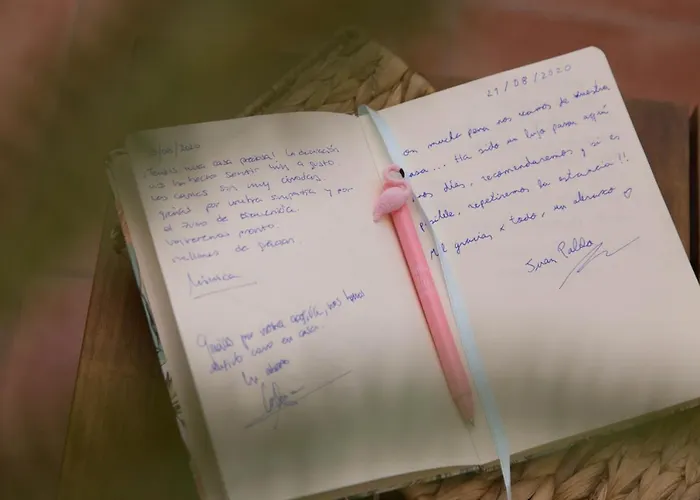 ¡Tenéis una casa preciosa! La decoración
nos ha hecho sentir muy a gusto.
Las camas son muy cómodas.
Gracias por vuestra simpatía y por
el zumo de bienvenida.
Volveremos pronto.
millones de gracias.
Mónica
Gracias por vuestra acogida, nos hemos
sentido como en casa.
Un abrazo
21/08/2020
mucha pena nos vamos de vuestra
casa... Ha sido un lujo pasar aquí
unos días, recomendaremos y si es
posible, repetiremos la estancia!!
Mil gracias x todo, un abrazo
Juan Pablo